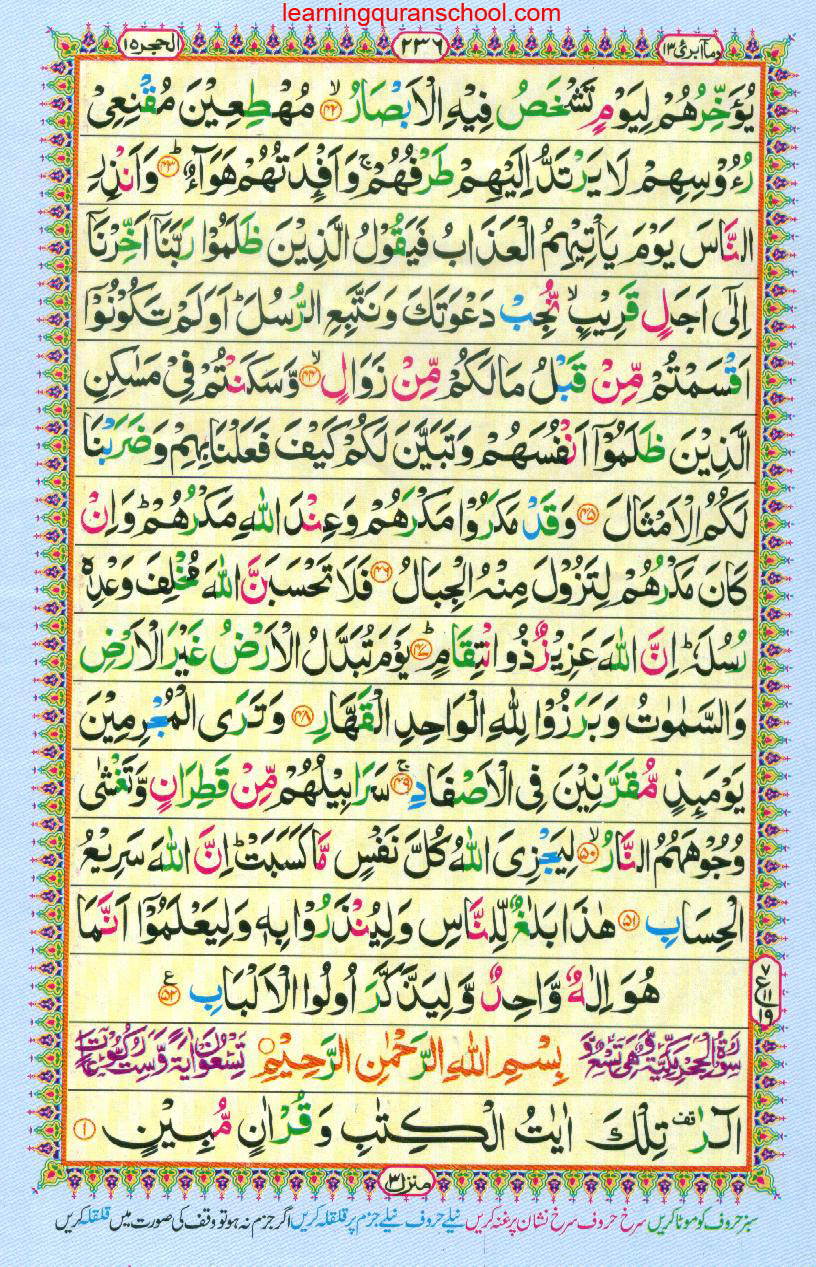 learningquranschool.com
وماابرئ ۱۳
۲۳٦
الحجر ۱۵
يُؤَخِّرُهُمْ لِيَوْمٍ تَشْخَصُ فِيْهِ الْاَبْصَارُ ۙ‏ ﴿۴۲﴾ مُهْطِعِيْنَ مُقْنِعِىْ
رُءُوْسِهِمْ لَا يَرْتَدُّ اِلَيْهِمْ طَرْفُهُمْ ۚ وَاَفْـِٕدَتُهُمْ هَوَآءٌ ؕ ﴿۴۳﴾ وَاَنْذِرِ
النَّاسَ يَوْمَ يَاْتِيْهِمُ الْعَذَابُ فَيَقُوْلُ الَّذِيْنَ ظَلَمُوْا رَبَّنَاۤ اَخِّرْنَاۤ
اِلٰٓى اَجَلٍ قَرِيْبٍ ۙ نُّجِبْ دَعْوَتَكَ وَنَتَّبِعِ الرُّسُلَ ؕ اَوَلَمْ تَكُوْنُوْۤا
اَقْسَمْتُمْ مِّنْ قَبْلُ مَا لَكُمْ مِّنْ زَوَالٍ ۙ ﴿۴۴﴾ وَّسَكَنْتُمْ فِىْ مَسٰكِنِ
الَّذِيْنَ ظَلَمُوْۤا اَنْفُسَهُمْ وَتَبَيَّنَ لَكُمْ كَيْفَ فَعَلْنَا بِهِمْ وَضَرَبْنَا
لَكُمُ الْاَمْثَالَ ﴿۴۵﴾ وَقَدْ مَكَرُوْا مَكْرَهُمْ وَعِنْدَ اللّٰهِ مَكْرُهُمْ ؕ وَاِنْ
كَانَ مَكْرُهُمْ لِتَزُوْلَ مِنْهُ الْجِبَالُ ﴿۴۶﴾ فَلَا تَحْسَبَنَّ اللّٰهَ مُخْلِفَ وَعْدِهٖ
رُسُلَهٗ ؕ اِنَّ اللّٰهَ عَزِيْزٌ ذُو انْتِقَامٍ ؕ ﴿۴۷﴾ يَوْمَ تُبَدَّلُ الْاَرْضُ غَيْرَ الْاَرْضِ
وَالسَّمٰوٰتُ وَبَرَزُوْا لِلّٰهِ الْوَاحِدِ الْقَهَّارِ ﴿۴۸﴾ وَتَرَى الْمُجْرِمِيْنَ
يَوْمَٮِٕذٍ مُّقَرَّنِيْنَ فِى الْاَصْفَادِ ۚ ﴿۴۹﴾ سَرَابِيْلُهُمْ مِّنْ قَطِرَانٍ وَّتَغْشٰى
وُجُوْهَهُمُ النَّارُ ۙ ﴿۵۰﴾ لِيَجْزِىَ اللّٰهُ كُلَّ نَفْسٍ مَّا كَسَبَتْ ؕ اِنَّ اللّٰهَ سَرِيْعُ
الْحِسَابِ ﴿۵۱﴾ هٰذَا بَلٰغٌ لِّلنَّاسِ وَلِيُنْذَرُوْا بِهٖ وَلِيَعْلَمُوْۤا اَنَّمَا
هُوَ اِلٰهٌ وَّاحِدٌ وَّلِيَذَّكَّرَ اُولُوا الْاَلْبَابِ ﴿۵۲﴾ ع
۷ ع ۱۱ ۱۹
سُوْرَةُ الْحِجْرِ مَكِّيَّةٌ وَّهِىَ تِسْعٌ وَّ بِسْمِ اللّٰهِ الرَّحْمٰنِ الرَّحِيْمِ تِسْعُوْنَ اٰيَةً وَّسِتُّ رُكُوْعَاتٍ
الٓرٰ قف تِلْكَ اٰيٰتُ الْكِتٰبِ وَقُرْاٰنٍ مُّبِيْنٍ ﴿۱﴾
منزل ۳
سبز حروف کو موٹا کریں سرخ حروف سرخ نشان پر غنہ کریں نیلے حروف نیلے جزم پر قلقلہ کریں اگر جزم نہ ہو تو وقف کی صورت میں قلقلہ کریں